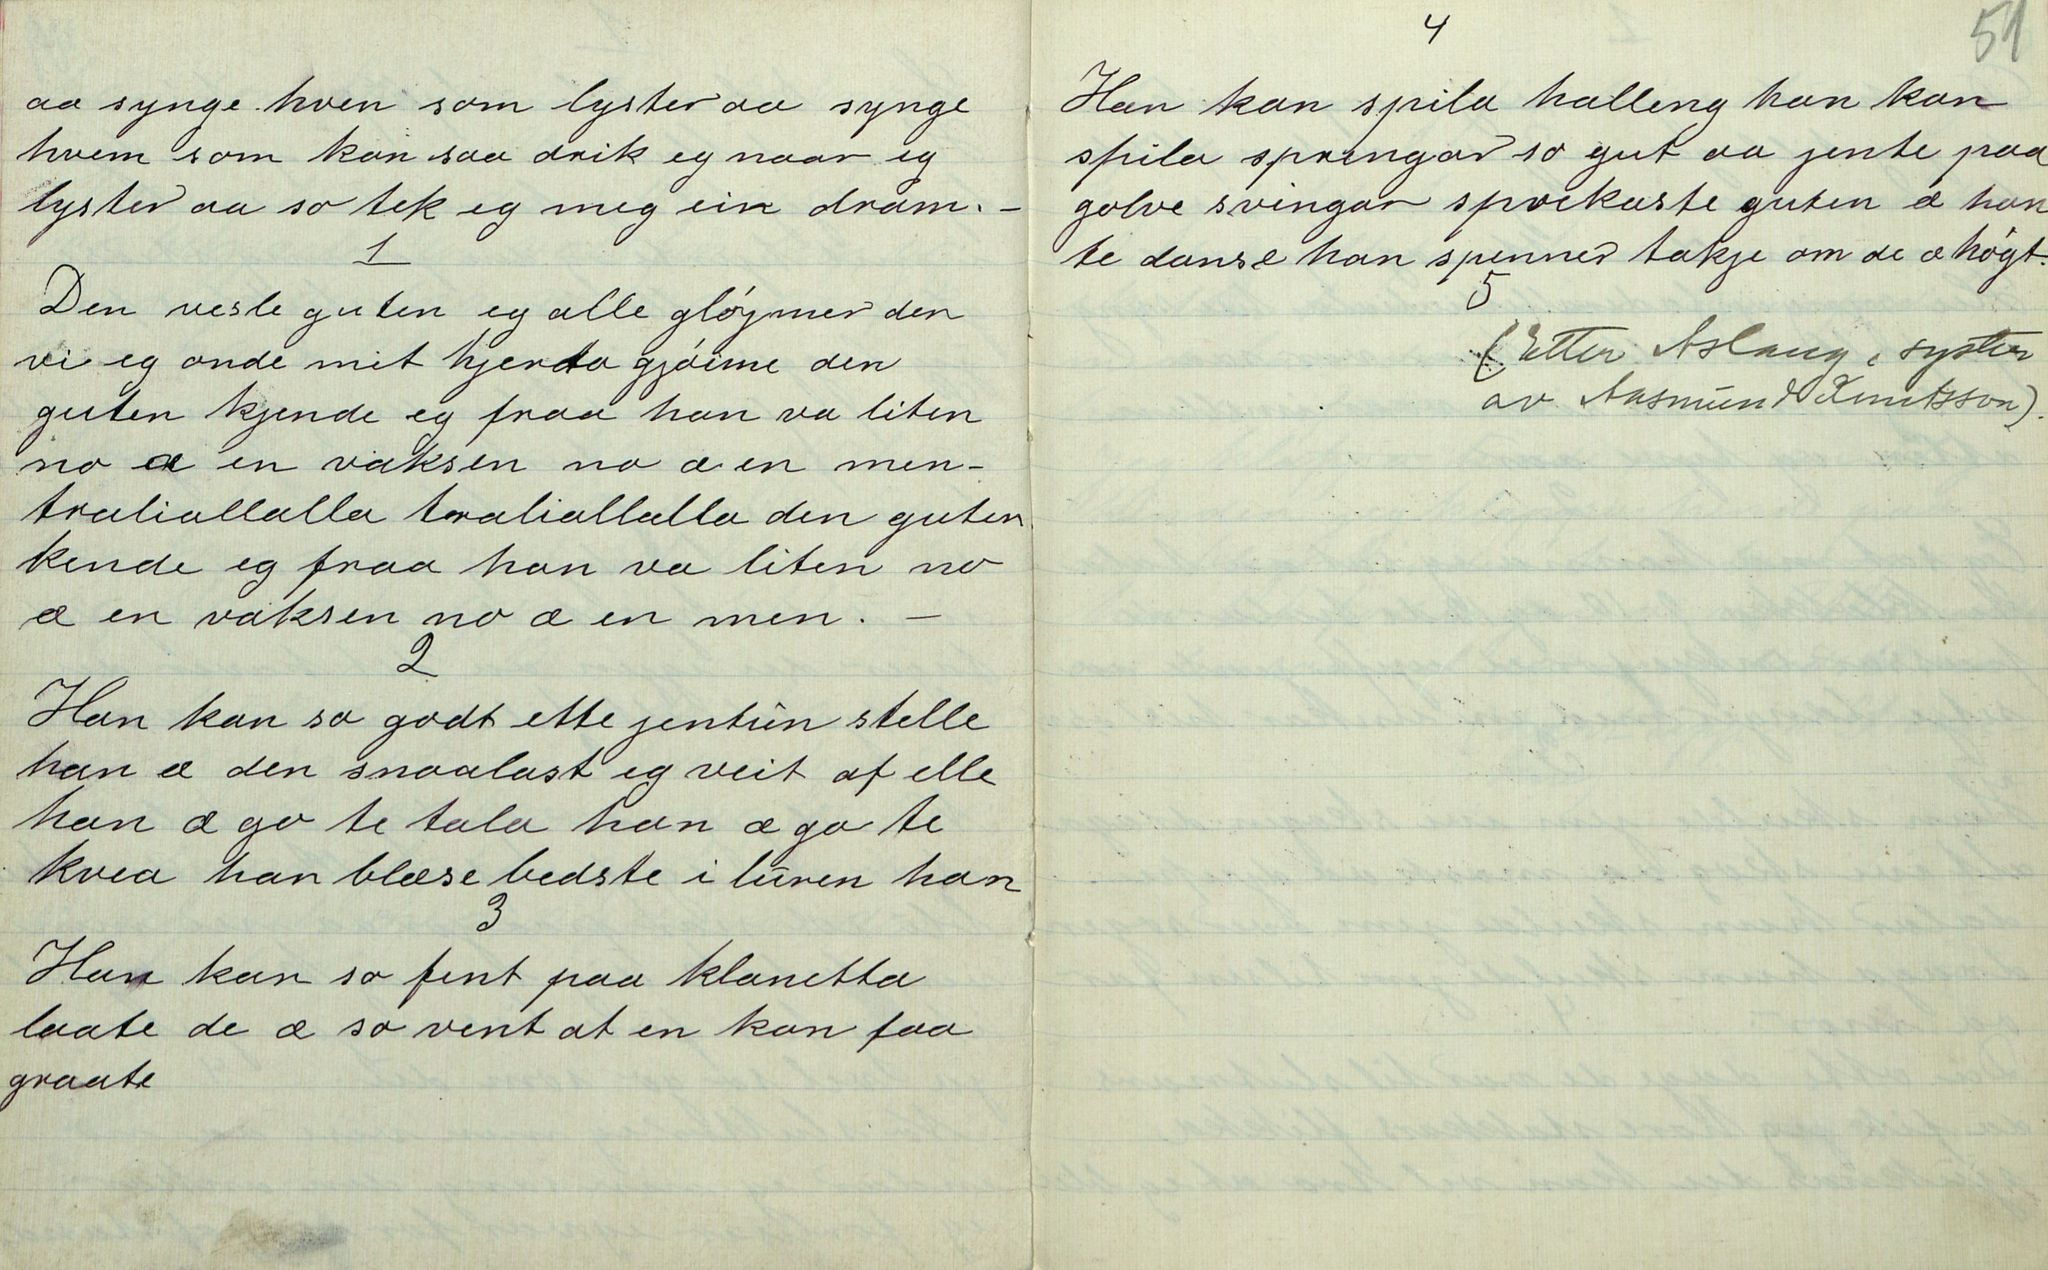 aa synge hven som lyster aa synge
hvem som kan saa drik eg naar eg
lyster aa so tek eg meg ein dram. –
1
Den vesle guten eg alle gløymer den
vi eg onde mit hjerta gjøime den
guten kjende eg fraa han va liten
no æ en vaksen no æ en men –
traliallalla traliallalla den guten
kende eg fraa han va liten no
æ en vaksen no æ en men. –
2
Han kan so godt ette jentun stelle
han æ den snaalast eg veit af elle
han æ go te tala han æ go te
kvea han blæse bedste i luren han
3
Han kan so fint paa klanetta
laate de æ so vent at en kan faa
graate
51
4
Han kan spila halleng han kan
spila springar so gut aa jente paa
golve svingar sprekaste guten æ han
te danse han spenner takje om de æ høgt.
5
(Etter Aslaug, syster
av Aasmund Knutsson).